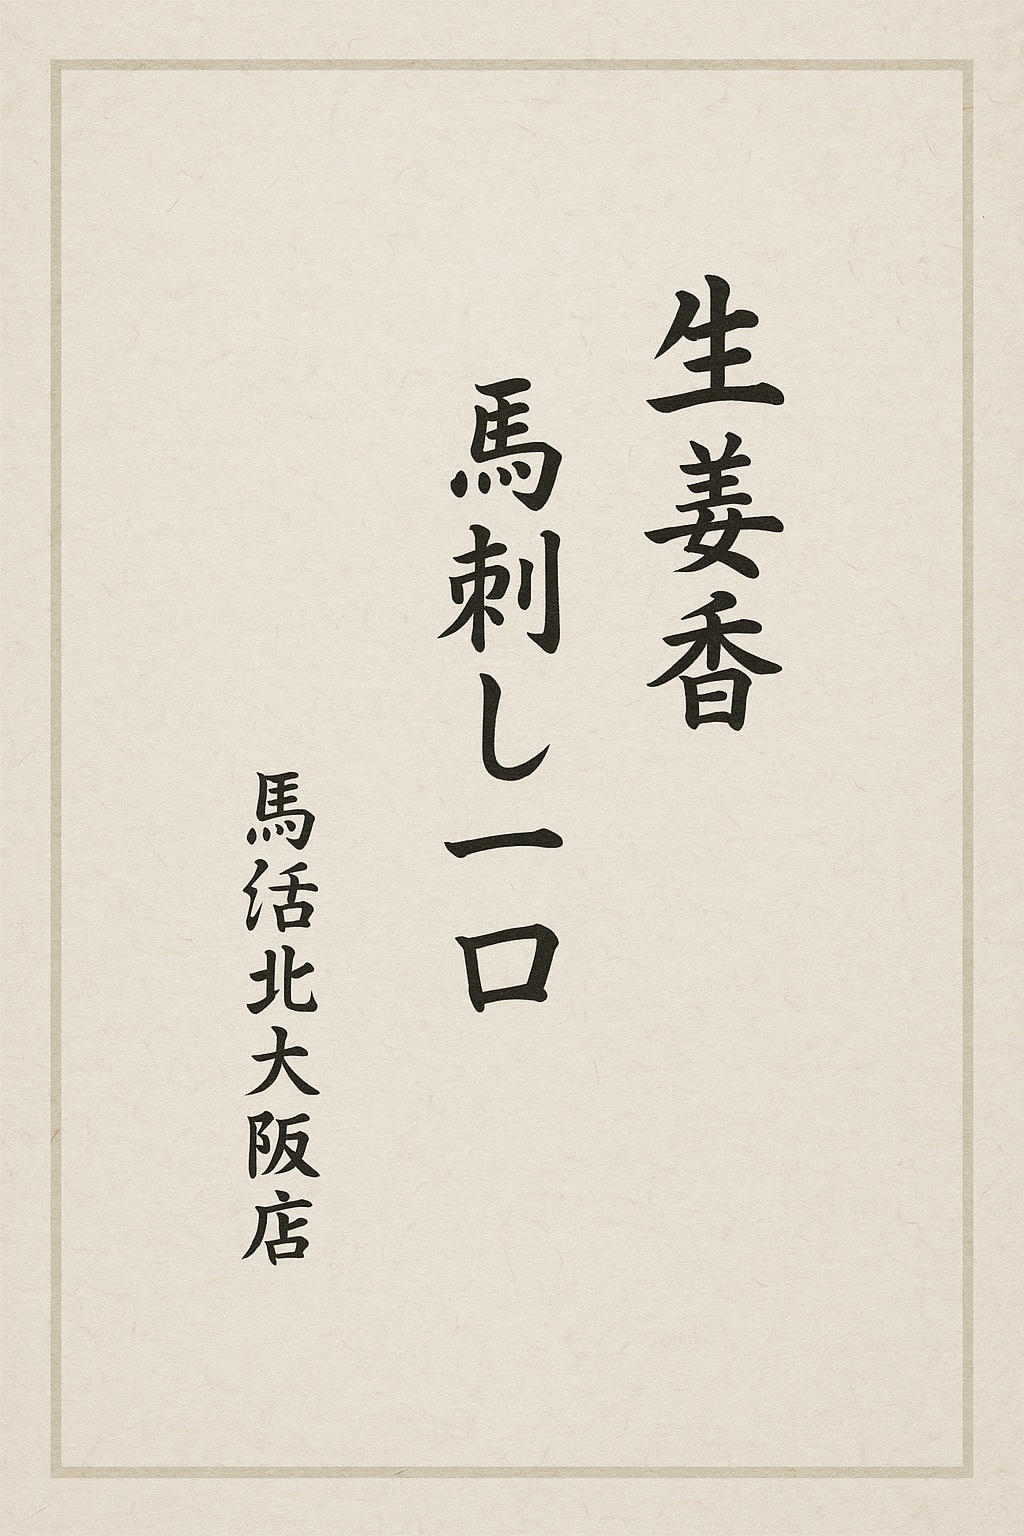 生姜香
馬刺し一口
馬活北大阪店